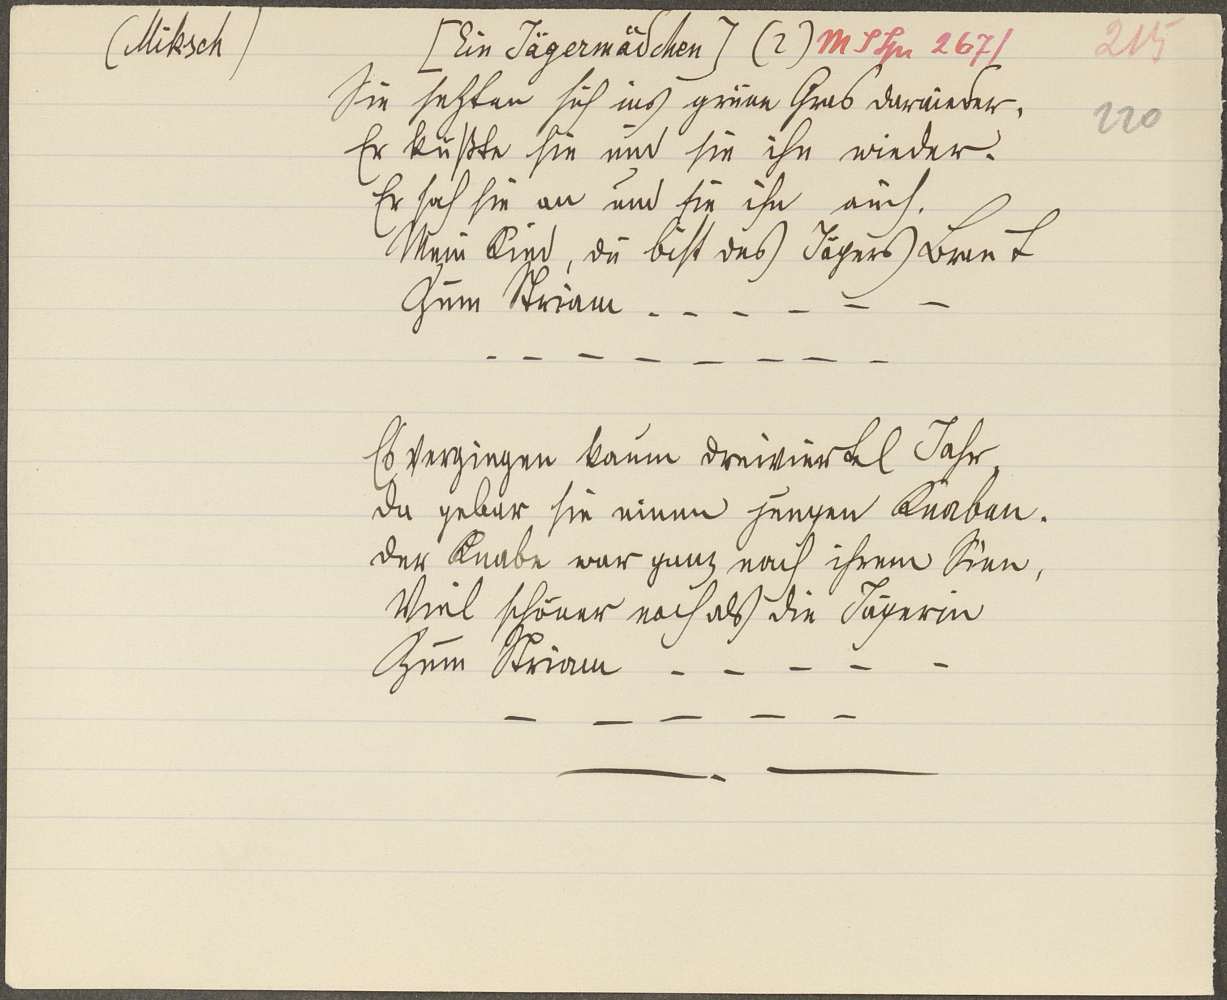 (Miksch) [Ein Jägermädchen] (2) 267/ 215
220
Sie setzten sich ins grüne Gras darnieder.
Er küßte sie und sie ihn wieder.
Er sah sie an und sie ihn auch.
Mein Kind, du bist des Jägers Braut
Zum Striam . - - - - -
- - - - - - - -
Es vergingen kaum dreiviertel Jahr,
da gebar sie einen jungen Knaben.
der Knabe war ganz nach ihrem Sinn,
Viel schöner noch als die Jägerin
Zum Striam - - - - -
- - - - -